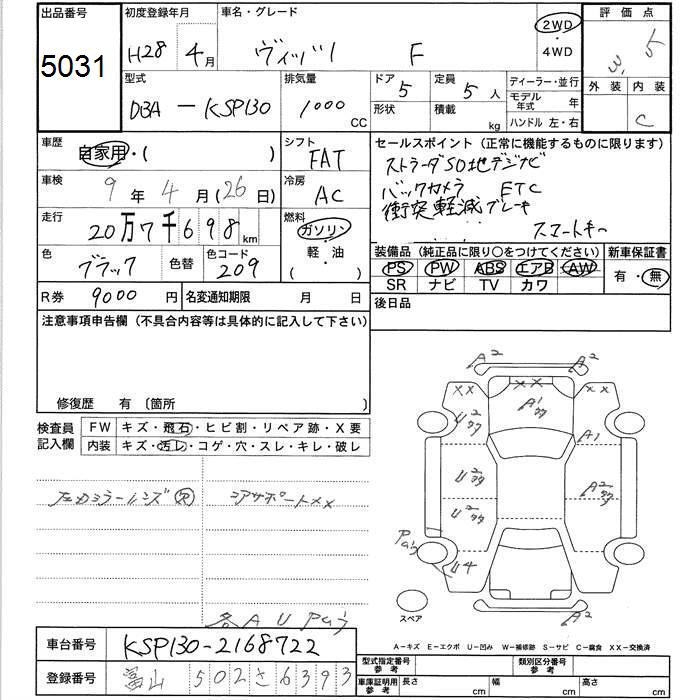 出品番号 5031
初度登録年月 H28年 4月
車名・グレード ヴィッツ F
2WD・4WD
評価点 3.5
外装 内装 C
型式 DBA-KSP130
排気量 1000 CC
ドア 5 形状
定員 5人 積載 kg
ディーラー・並行
モデル年式 年
ハンドル 左・右
車歴 自家用・( )
シフト FAT
車検 9年4月(26日)
冷房 AC
走行 20万7千698km
燃料 ガソリン・軽・油 ( )
色 ブラック 色替 色コード 209
R券 9000円 名変通知期限 月 日
セールスポイント(正常に機能するものに限ります)
ストラーダSD地デジナビ
バックカメラ ETC
衝突軽減ブレーキ
スマートキー
装備品(純正品に限り○をつけてください) 新車保証書
PS PW ABS エアB AW 有・無
SR ナビ TV カワ
後日品
注意事項申告欄(不具合内容等は具体的に記入して下さい)
修復歴 有〔箇所 〕
検査員記入欄
FW キズ・飛石・ヒビ割・リペア跡・X要
内装 キズ・汚レ・コゲ・穴・スレ・キレ・破レ
左ドアミラーレンズ 欠
コアサポートXX
各AU Paう
A2 A2
XX XX
A1
U2 A1
U2 A2
U2
Paう
U4
A2
スペア
A-キズ E-エクボ U-凹み W-補修跡 S-サビ C-腐食 XX-交換済
車台番号 KSP130-2168722
登録番号 富山 502 さ 6393
型式指定番号 参考 類別区分番号 参考
車庫証明用 参考 長さ cm 幅 cm 高さ cm